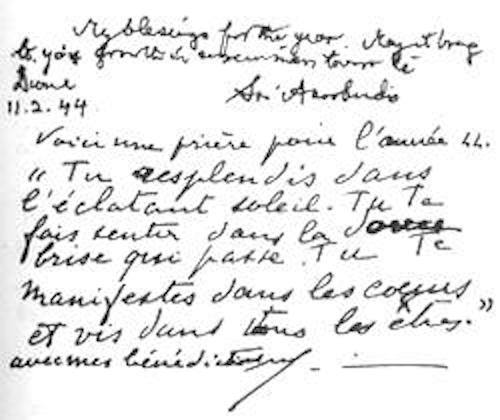 My blessings for the year. May it bring
to you growth in towards the
Divine
11.2.44 Sri Aurobindo
Voici une prière pour l'année 44.
"Tu resplendis dans
l'éclatant soleil. Tu Te
fais sentir dans la douce
brise qui passe. Tu Te
manifestes dans les coeurs
et vis dans tous les êtres."
avec mes bénédictions